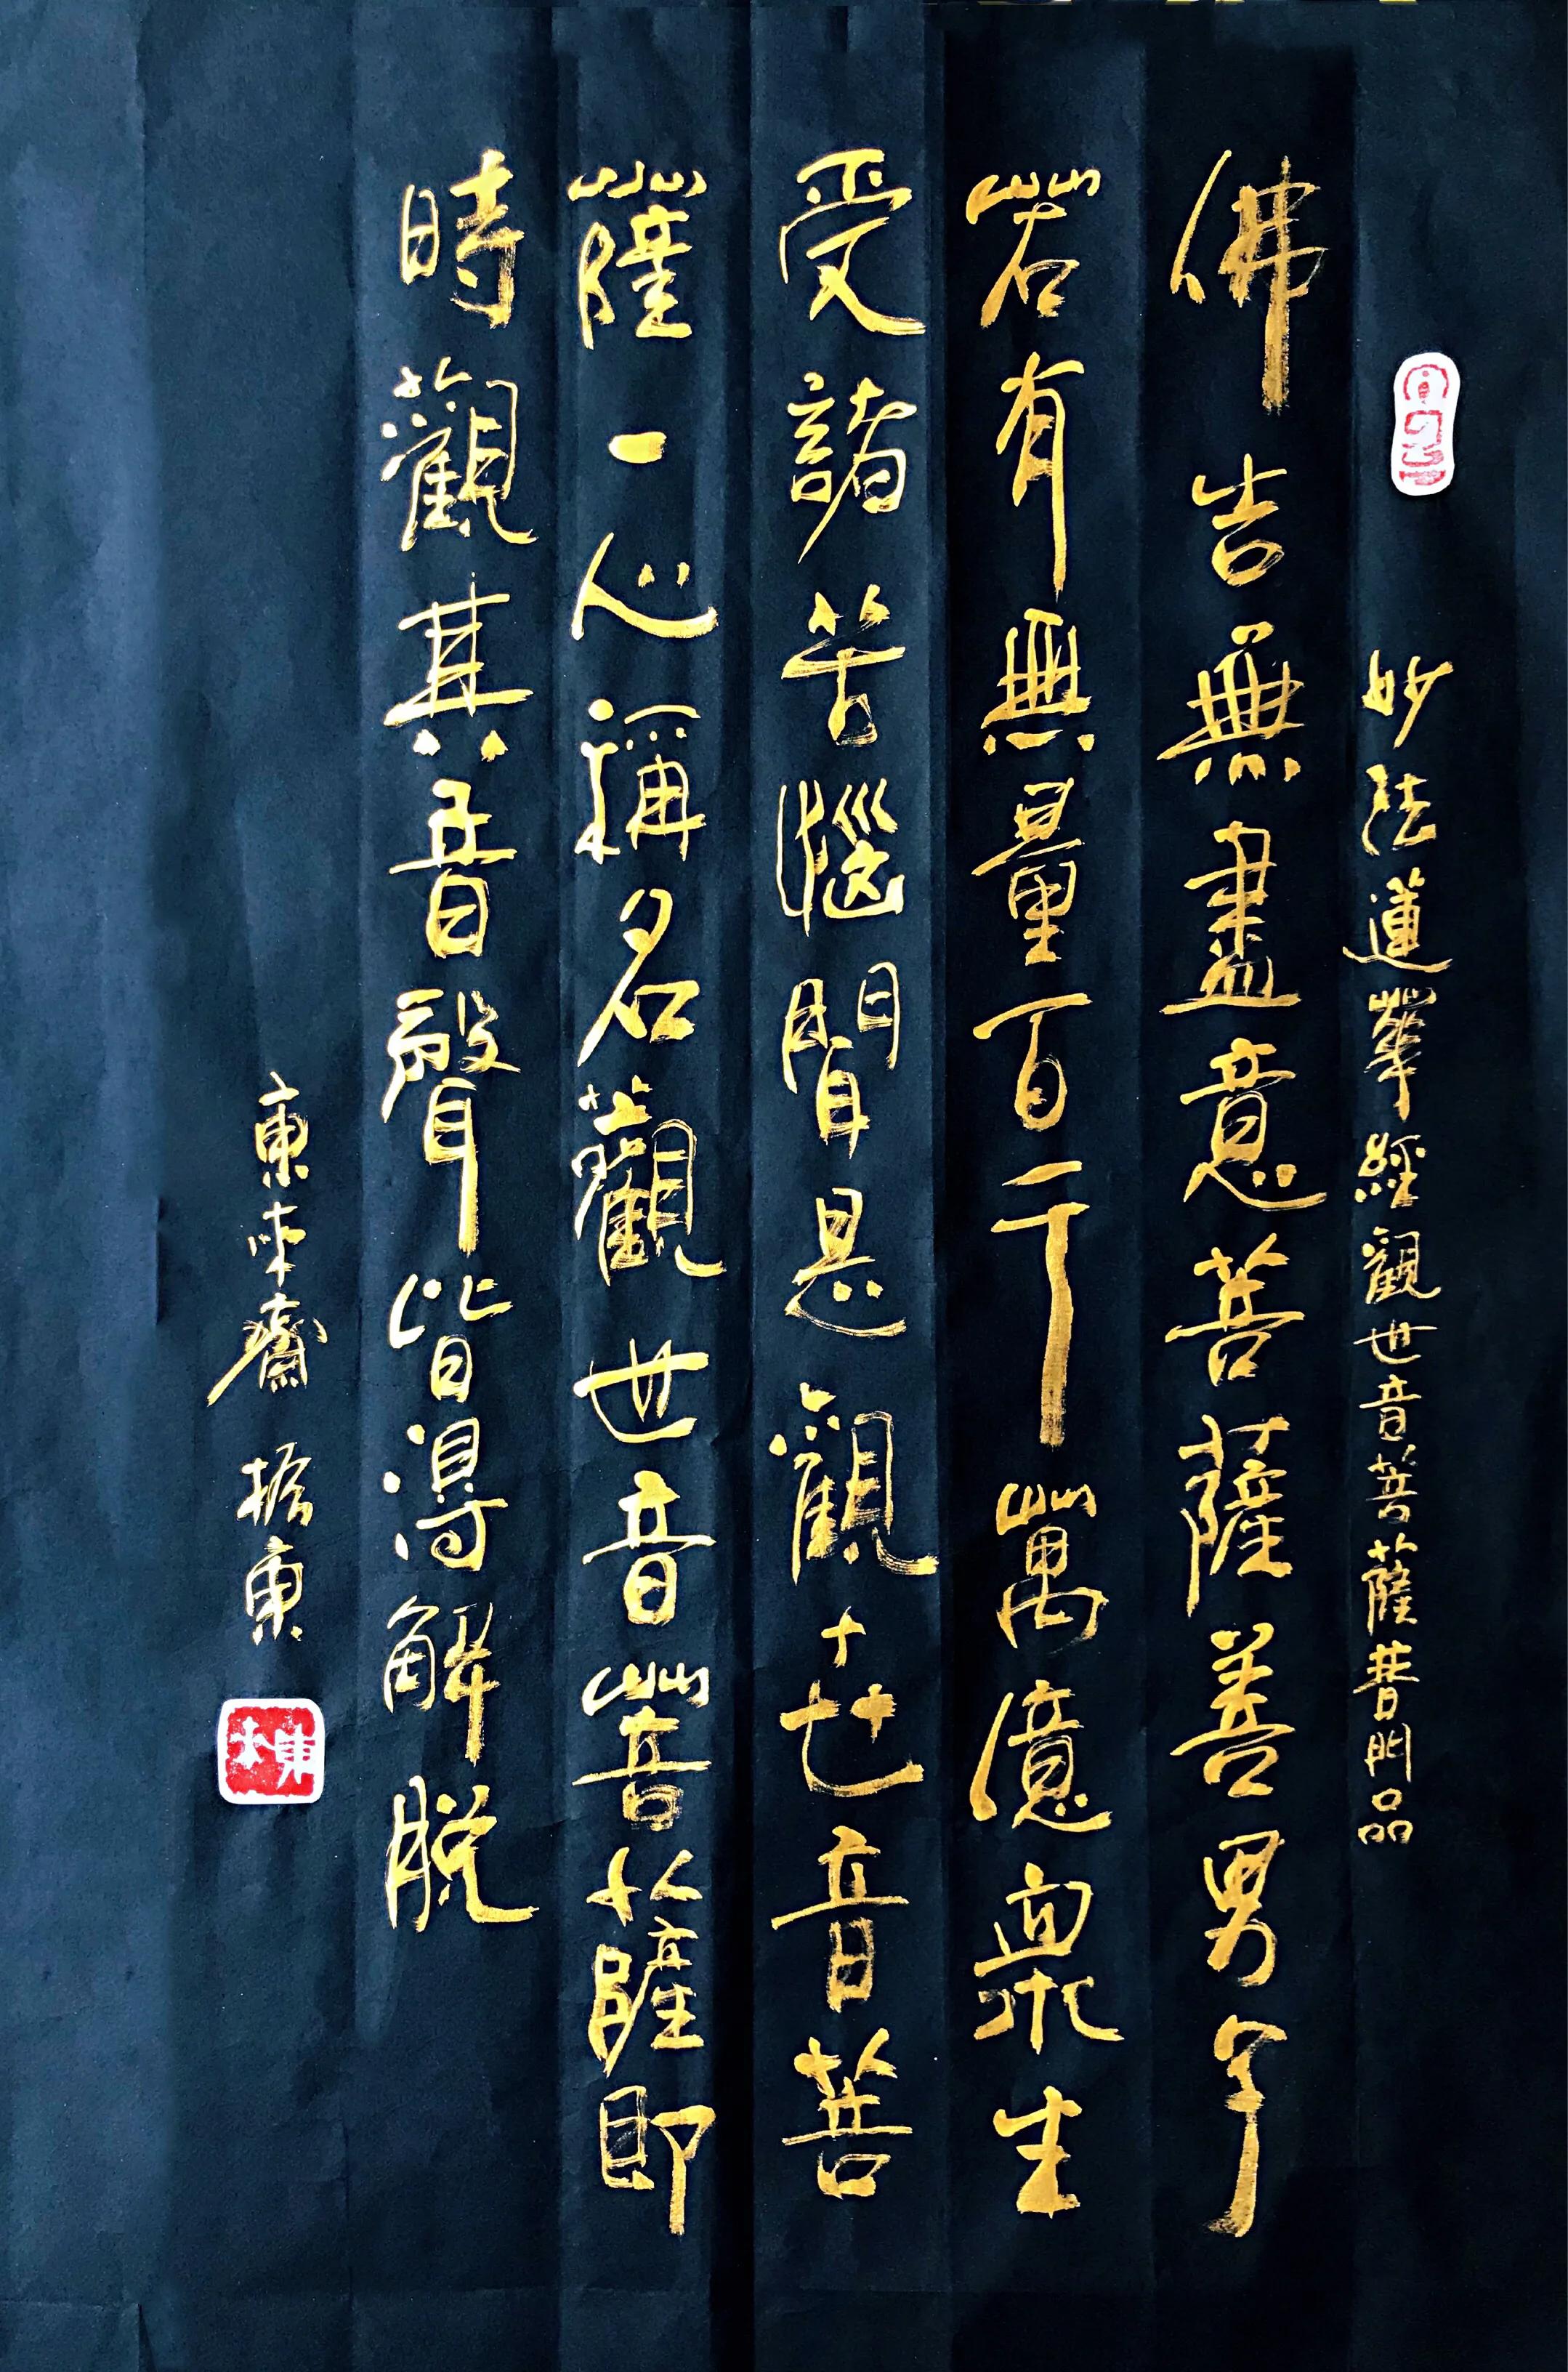 妙法蓮華經觀世音菩薩普門品
佛告無盡意菩薩善男子
若有無量百千萬億衆生
受諸苦惱聞是觀世音菩
薩一心稱名觀世音菩薩即
時觀其音聲皆得解脫
東
東